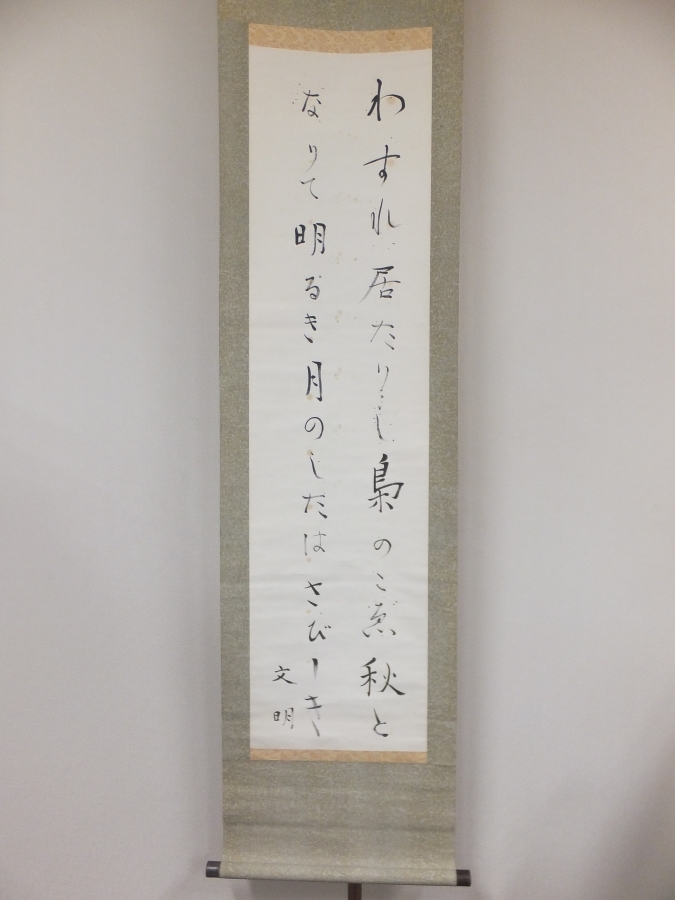 わすれ居たりし梟のこゑ秋と
なりて明るき月のしたはさびしき
文明